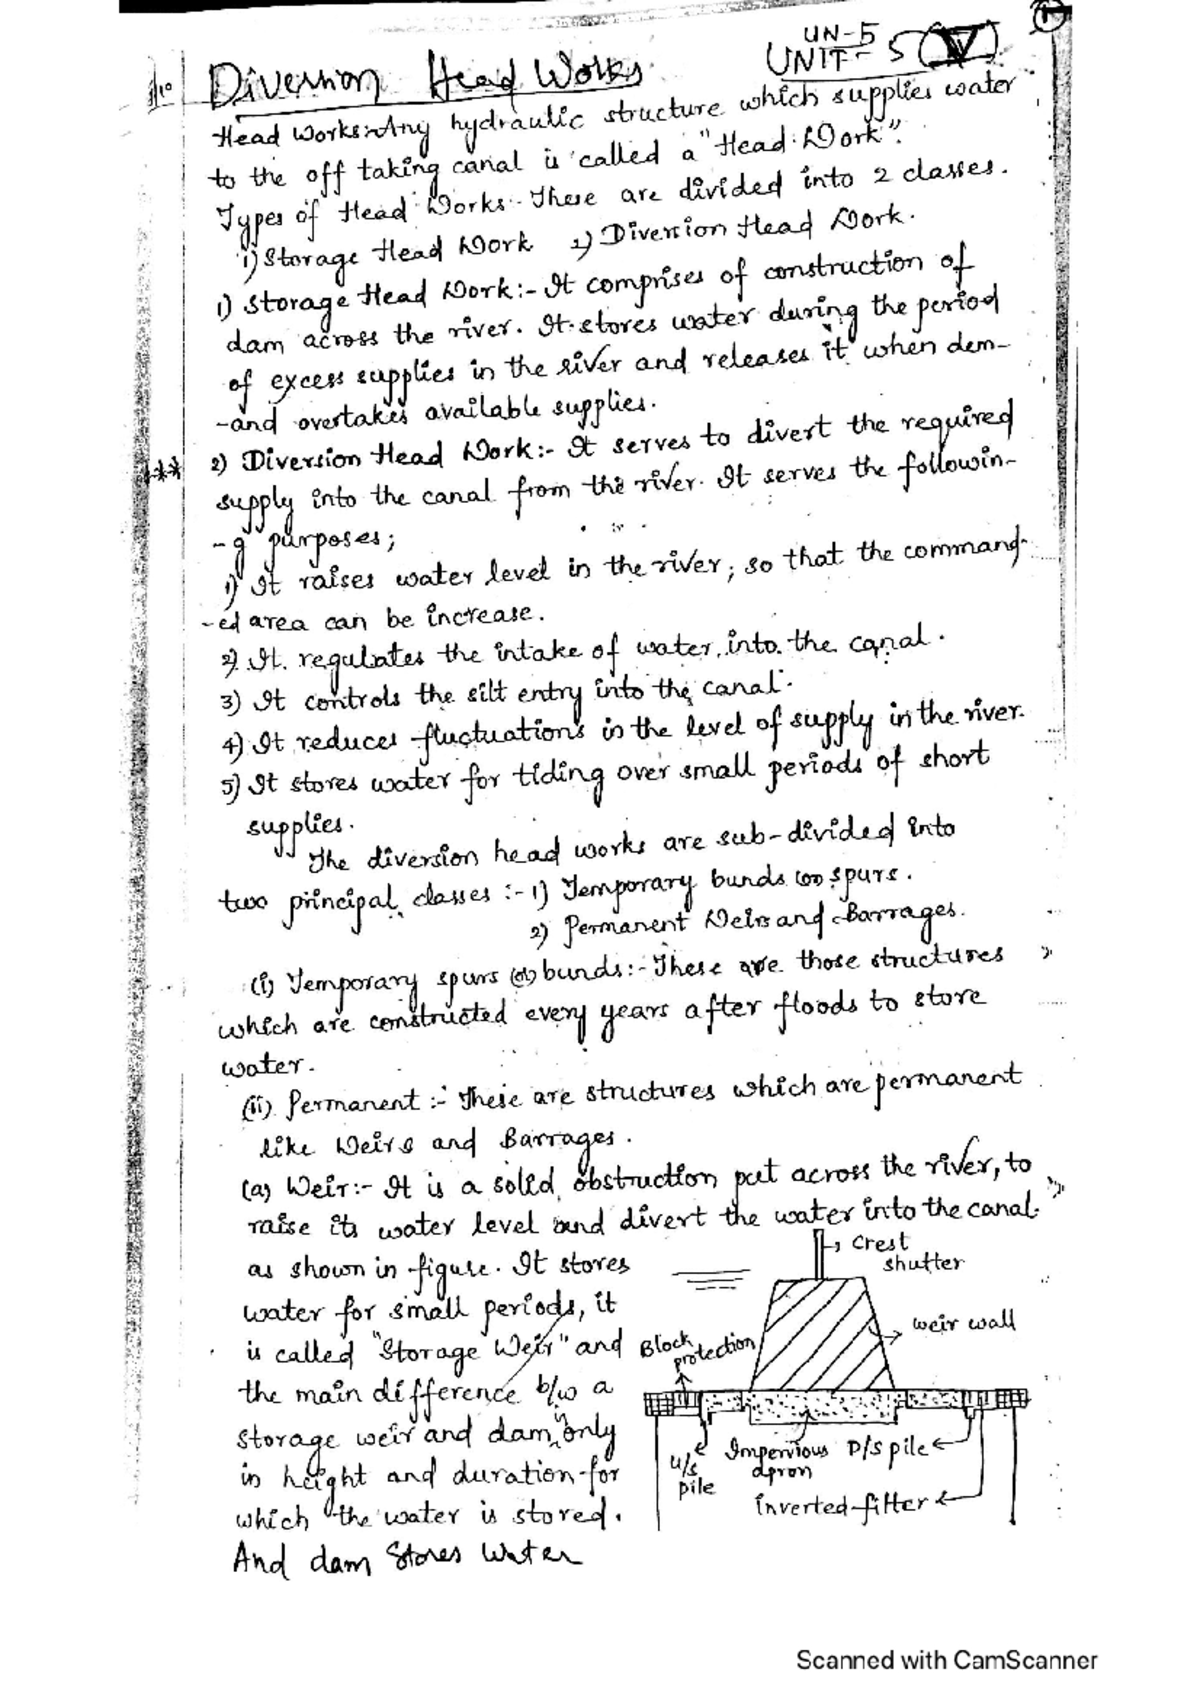 UN-5
UNIT-5 (V)
Diversion Head Works
Head Works:-Any hydraulic structure which supplies water
to the off taking canal is called a "Head Work".
Types of Head Works:- These are divided into 2 classes.
1) Storage Head Work 2) Diversion Head Work.
1) Storage Head Work:- It comprises of construction of
dam across the river. It stores water during the period
of excess supplies in the river and releases it when dem-
-and overtakes available supplies.
*** 2) Diversion Head Work:- It serves to divert the required
supply into the canal from the river. It serves the followin-
-g purposes;
1) It raises water level in the river, so that the command-
-ed area can be increase.
2) It regulates the intake of water into the canal.
3) It controls the silt entry into the canal.
4) It reduces fluctuations in the level of supply in the river.
5) It stores water for tiding over small periods of short
supplies.
The diversion head works are sub-divided into
two principal classes :- 1) Temporary bunds (or) spurs.
2) Permanent Weirs and Barrages.
(i) Temporary spurs (or) bunds:- These are those structures
which are constructed every years after floods to store
water.
(ii) Permanent :- These are structures which are permanent
like Weirs and Barrages.
(a) Weir:- It is a solid obstruction put across the river, to
raise its water level and divert the water into the canal.
as shown in figure. It stores
water for small periods, it
is called "Storage Weir" and
the main difference b/w a
storage weir and dam only
in height and duration for
which the water is stored.
And dam Stores Water
Crest
shutter
weir wall
Block
protection
u/s
pile
Impervious
apron
D/S pile
inverted filter
Scanned with CamScanner